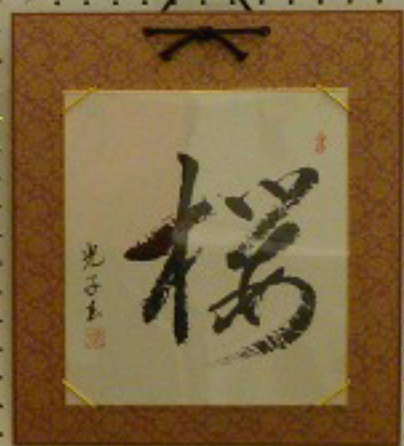 桜
光子書